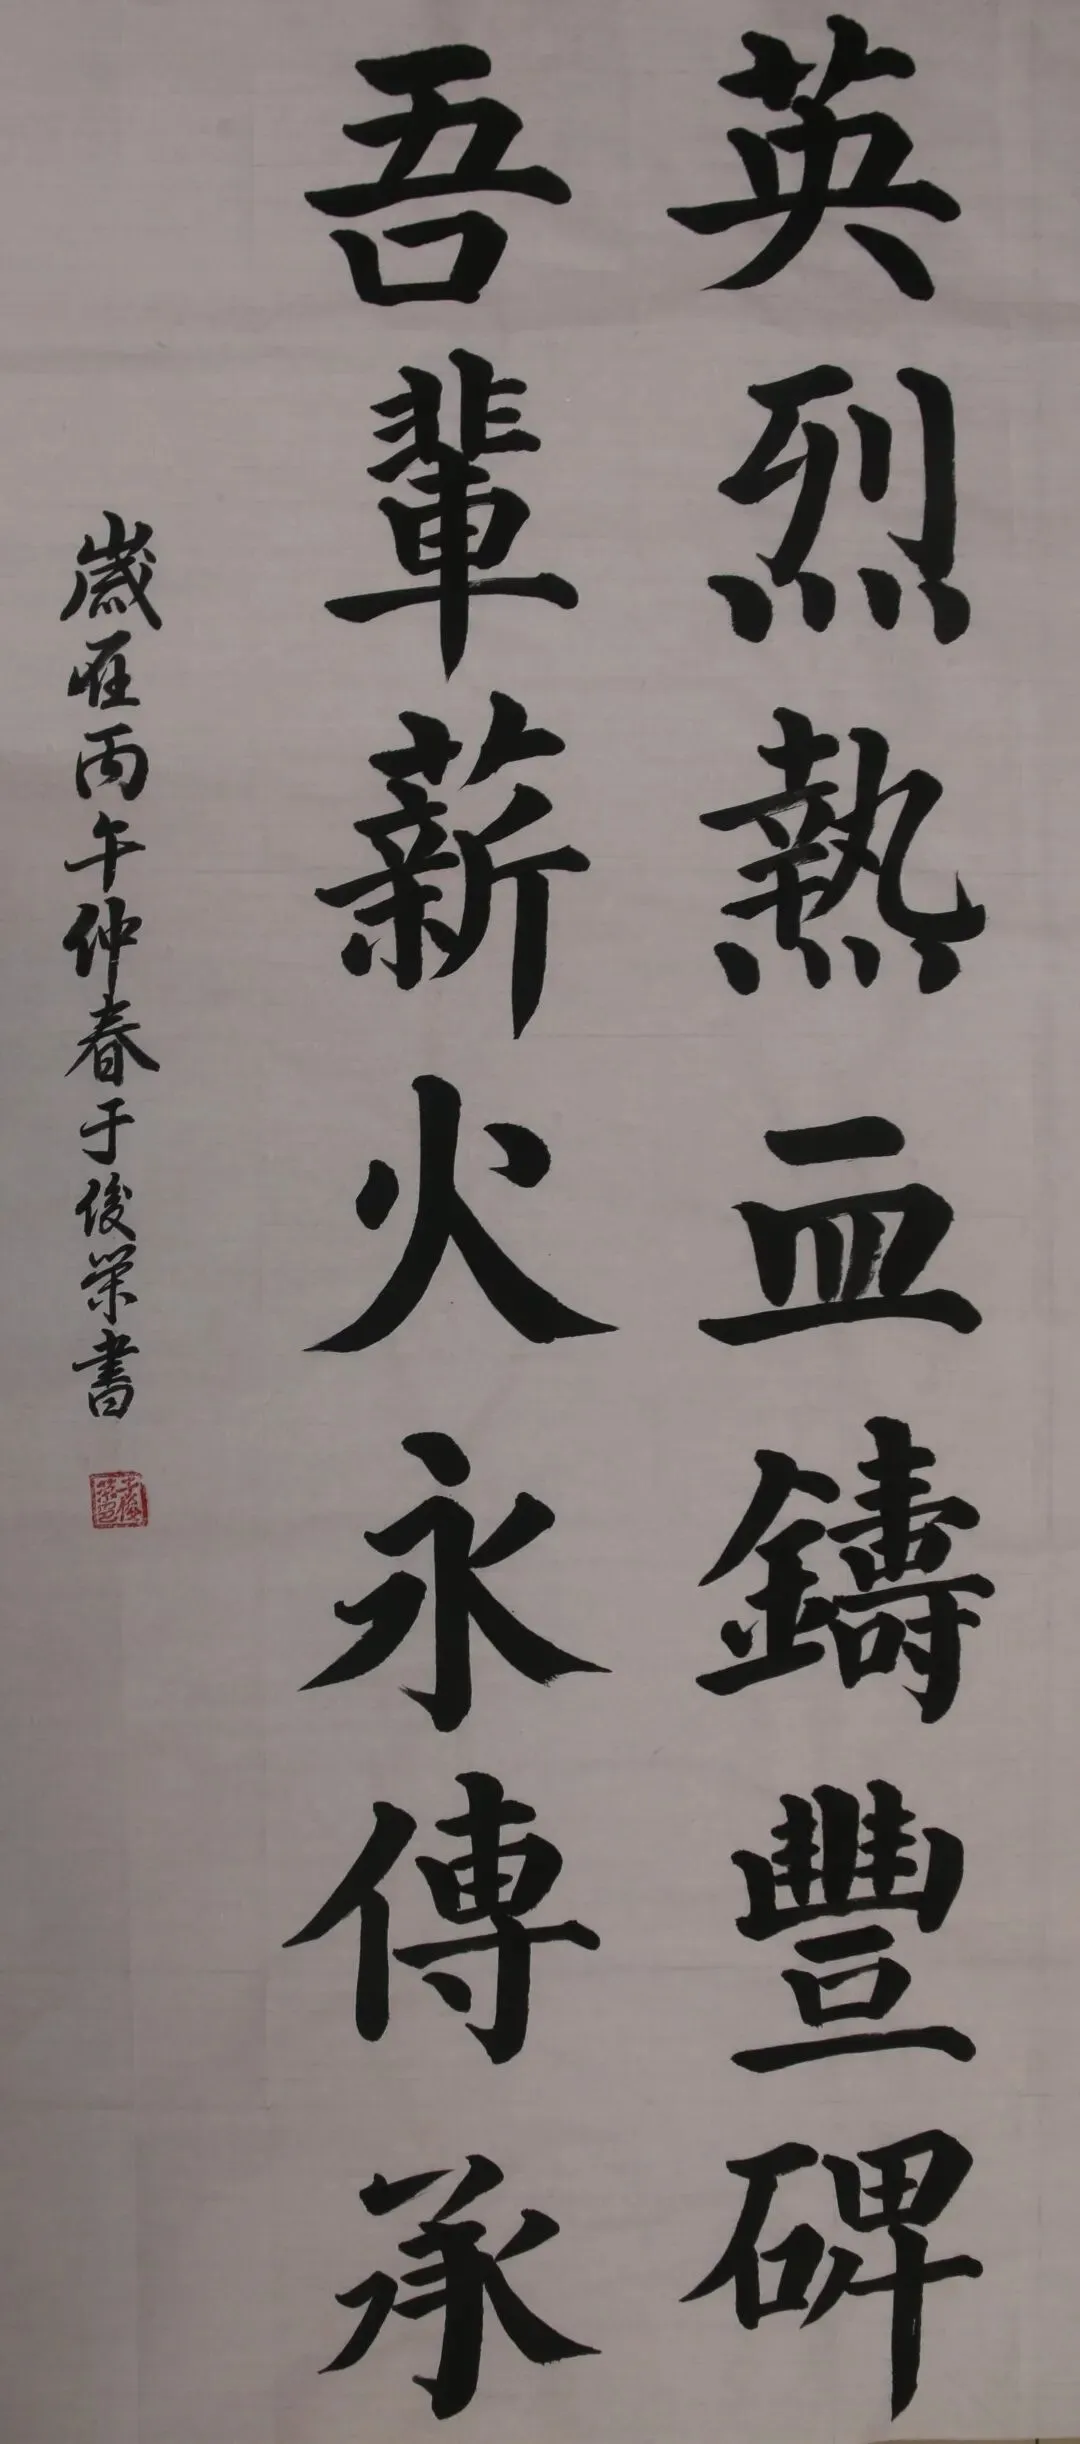 英烈熱血鑄豐碑
吾輩薪火永傳承
歲在丙午仲春于俊榮書